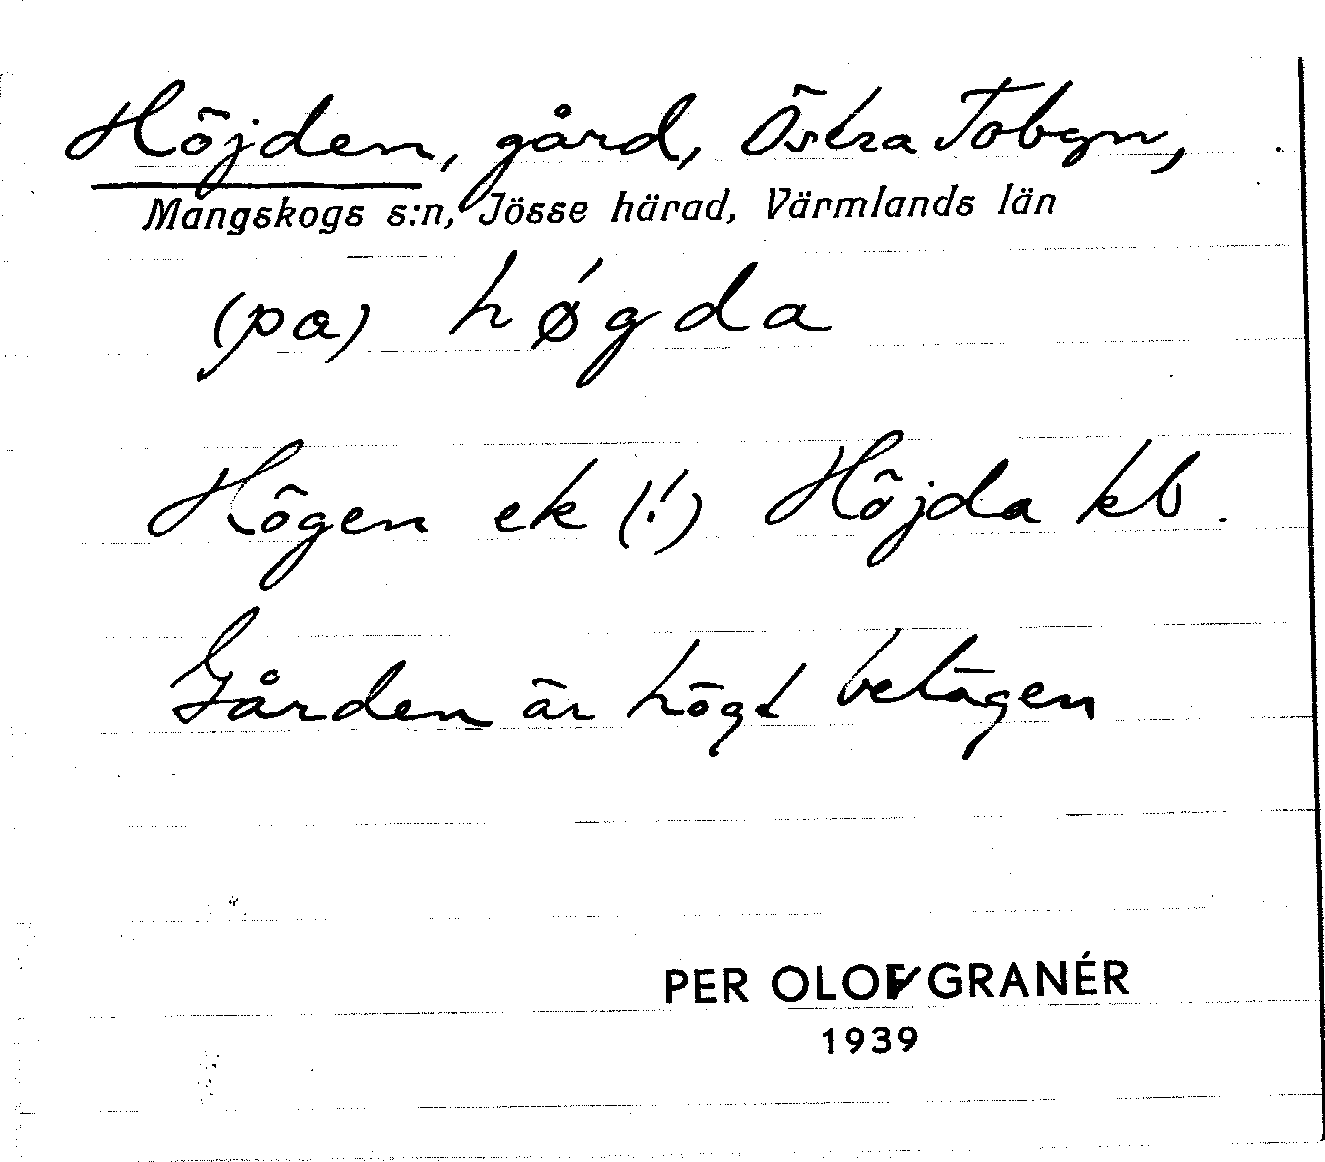 Höjden, gård, Östra Tobyn,
Mangskogs s:n, Jösse härad, Värmlands län
(pa) hǿgda
Högen ek (!) Höjda kb.
Gården är högt belägen
PER OLOF GRANÉR
1939